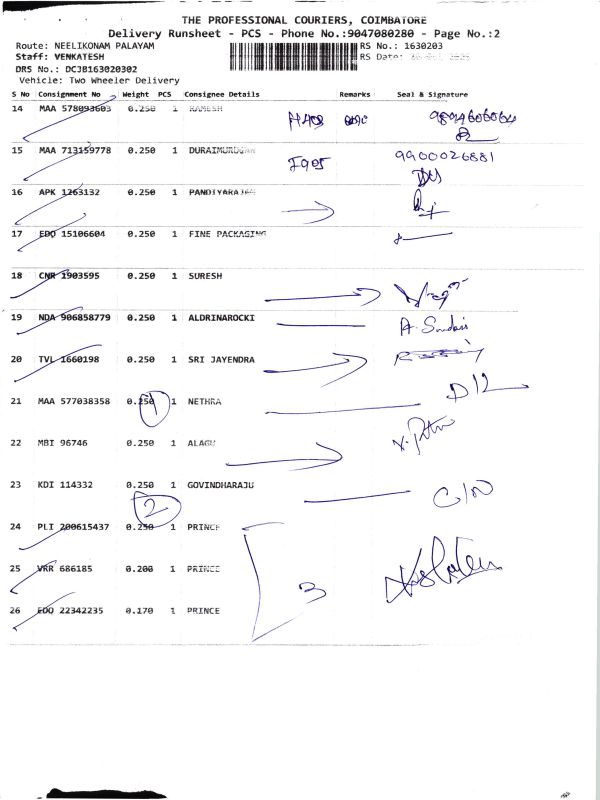 THE PROFESSIONAL COURIERS, COIMBATORE
Delivery Runsheet - PCS - Phone No.:9047080280 - Page No.:2
Route: NEELIKONAM PALAYAM RS No.: 1630203
Staff: VENKATESH RS Date:
DRS No.: DCJB163020302
Vehicle: Two Wheeler Delivery
S No Consignment No Weight PCS Consignee Details Remarks Seal & Signature
14 MAA 578093603 0.250 1 RAMESH
15 MAA 713159778 0.250 1 DURAIMURUGAN 9900026881
16 APK 1263132 0.250 1 PANDIYARAJAN
17 EDQ 15106604 0.250 1 FINE PACKAGING
18 CNR 1903595 0.250 1 SURESH
19 NDA 906858779 0.250 1 ALDRINAROCKI
20 TVL 1660198 0.250 1 SRI JAYENDRA
21 MAA 577038358 0.250 1 NETHRA
1
22 MBI 96746 0.250 1 ALAGU
23 KDI 114332 0.250 1 GOVINDHARAJU
2
24 PLI 200615437 0.250 1 PRINCE
25 VRR 686185 0.200 1 PRINCE
3
26 EDQ 22342235 0.170 1 PRINCE